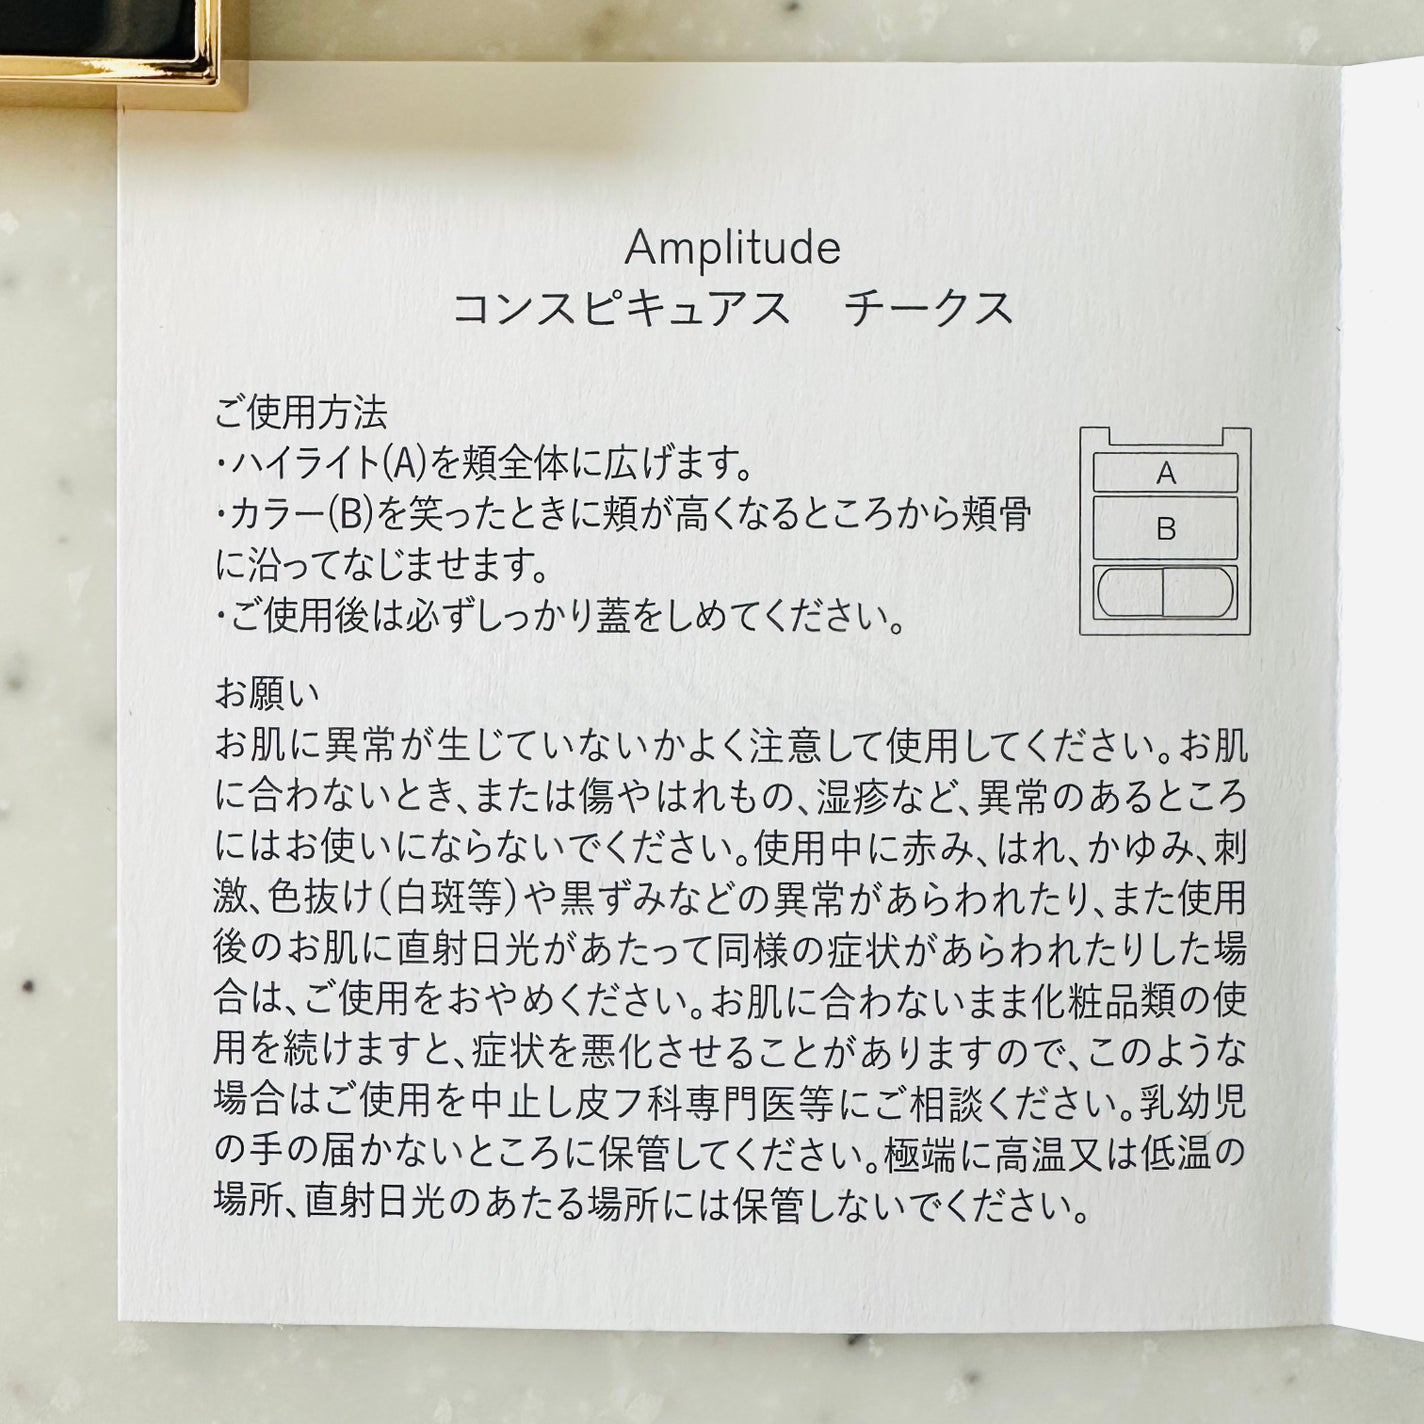 Amplitude
コンスピキュアス　チークス
ご使用方法
・ハイライト(A)を頬全体に広げます。
・カラー(B)を笑ったときに頬が高くなるところから頬骨
に沿ってなじませます。
・ご使用後は必ずしっかり蓋をしめてください。
A
B
お願い
お肌に異常が生じていないかよく注意して使用してください。お肌
に合わないとき、または傷やはれもの、湿疹など、異常のあるところ
にはお使いにならないでください。使用中に赤み、はれ、かゆみ、刺
激、色抜け(白斑等)や黒ずみなどの異常があらわれたり、また使用
後のお肌に直射日光があたって同様の症状があらわれたりした場
合は、ご使用をおやめください。お肌に合わないまま化粧品類の使
用を続けますと、症状を悪化させることがありますので、このような
場合はご使用を中止し皮フ科専門医等にご相談ください。乳幼児
の手の届かないところに保管してください。極端に高温又は低温の
場所、直射日光のあたる場所には保管しないでください。